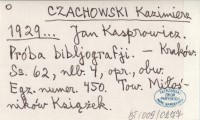 CZACHOWSKI Kazimierz
1929... Jan Kasprowicz.
Próba bibljografji. – Kraków.
Ss. 62, nlb. 4, opr., obw.
Egz. numer. 450. Tow. Miłoś-
ników Książek.